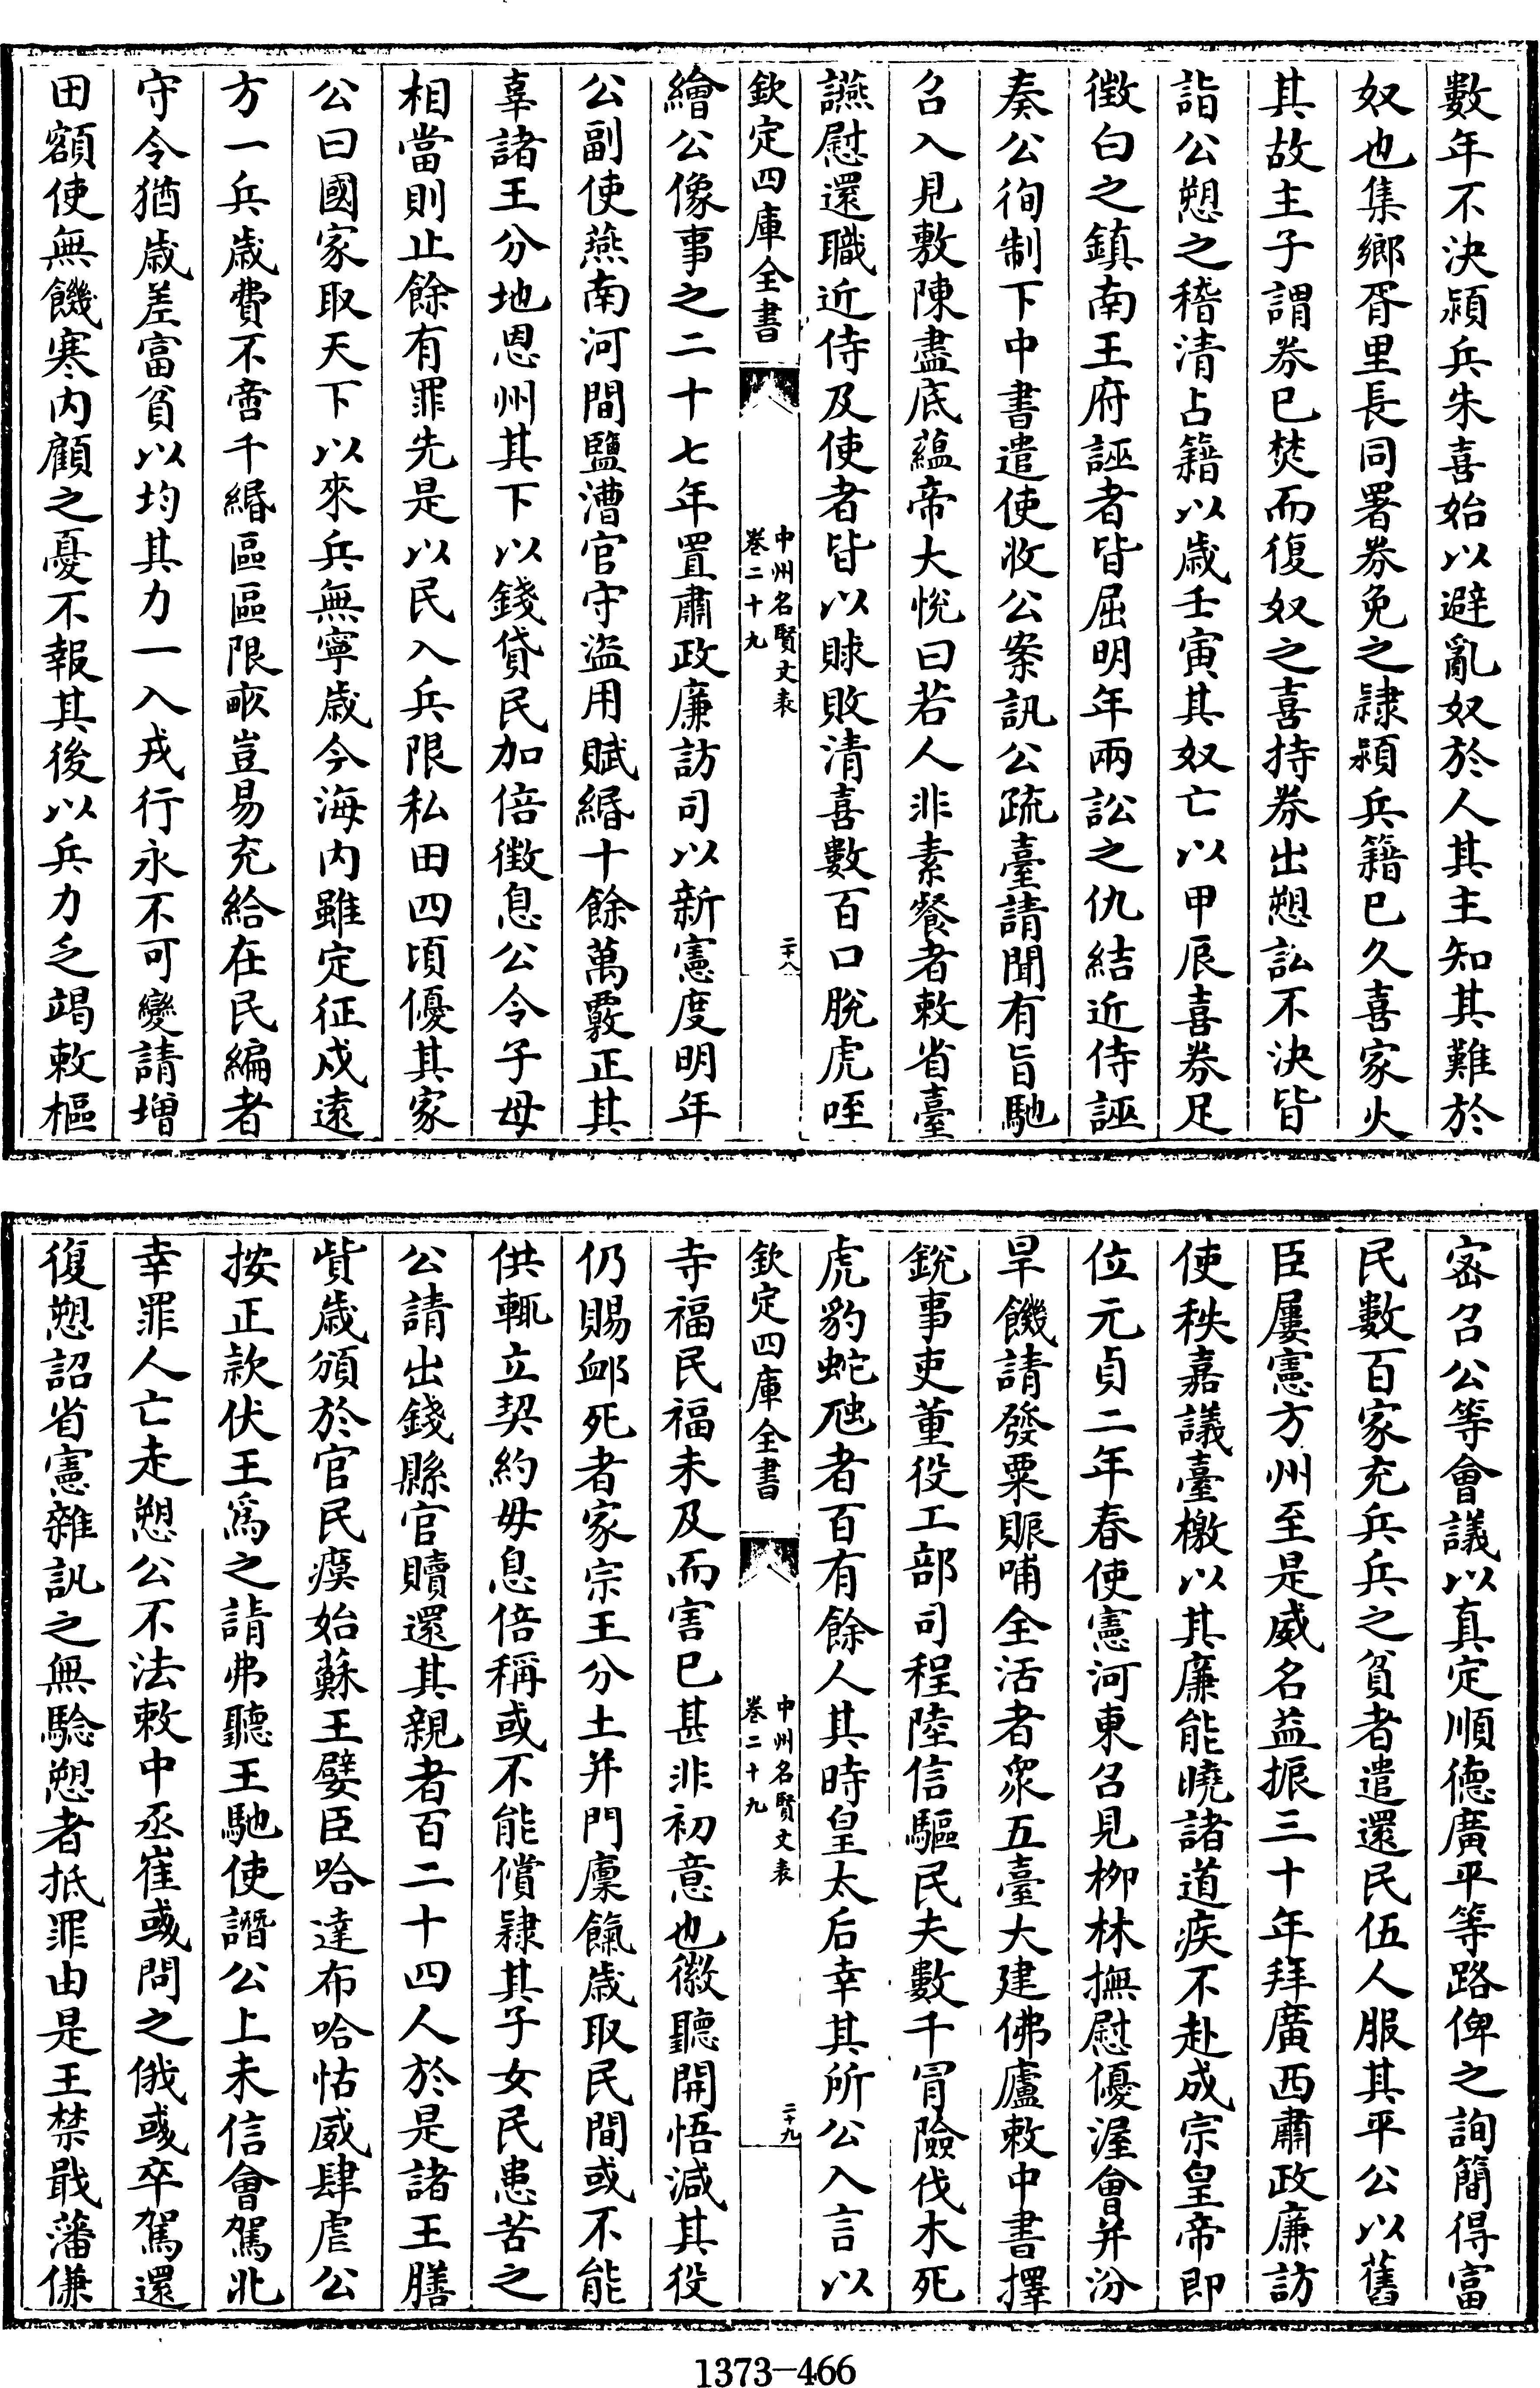 數年不決潁兵朱喜始以避亂奴於人其主知其難於
奴也集鄉胥里長同署券免之隷潁兵籍已久喜家火
其故主子謂券已焚而復奴之喜持券出愬訟不決皆
詣公愬之稽清占籍以歲壬寅其奴亡以甲辰喜券足
徴白之鎮南王府誣者皆屈明年兩訟之仇結近侍誣
奏公徇制下中書遣使收公案訊公疏臺請聞有旨馳
召入見敷陳盡底藴帝大悅曰若人非素餐者敕省臺
讌慰還職近侍及使者皆以賕敗清喜數百口脫虎咥
欽定四庫全書
中州名賢文表
卷二十九
二十八
繪公像事之二十七年置肅政廉訪司以新憲度明年
公副使燕南河間鹽漕官守盜用賦緡十餘萬覈正其
辜諸王分地恩州其下以錢貸民加倍徴息公令子母
相當則止餘有罪先是以民入兵限私田四頃優其家
公曰國家取天下以來兵無寧歲今海内雖定征戍遠
方一兵歲費不啻千緡區區限畝豈易充給在民編者
守令猶歲差富貧以均其力一入戎行永不可變請增
田額使無饑寒内顧之憂不報其後以兵力乏竭敕樞
宻召公等會議以真定順德廣平等路俾之詢簡得富
民數百家充兵兵之貧者遣還民伍人服其平公以舊
臣屢憲方州至是威名益振三十年拜廣西肅政廉訪
使秩嘉議臺檄以其廉能曉諸道疾不赴成宗皇帝即
位元貞二年春使憲河東召見柳林撫慰優渥會并汾
旱饑請發粟賑哺全活者衆五臺大建佛廬敕中書擇
銳事吏董役工部司程陸信驅民夫數千冐險伐木死
虎豹蛇虺者百有餘人其時皇太后幸其所公入言以
欽定四庫全書
中州名賢文表
卷二十九
二十九
寺福民福未及而害已甚非初意也徽聽開悟減其役
仍賜䘏死者家宗王分土并門廩餼歲取民間或不能
供輒立契約毋息倍稱或不能償隷其子女民患苦之
公請出錢縣官贖還其親者百二十四人於是諸王膳
貲歲頒於官民瘼始蘇王嬖臣哈達布哈怙威肆虐公
按正款伏王爲之請弗聽王馳使譖公上未信會駕北
幸罪人亡走愬公不法敕中丞崔彧問之俄彧卒駕還
復愬詔省憲雜訊之無驗愬者抵罪由是王禁戢藩傔
1373-466